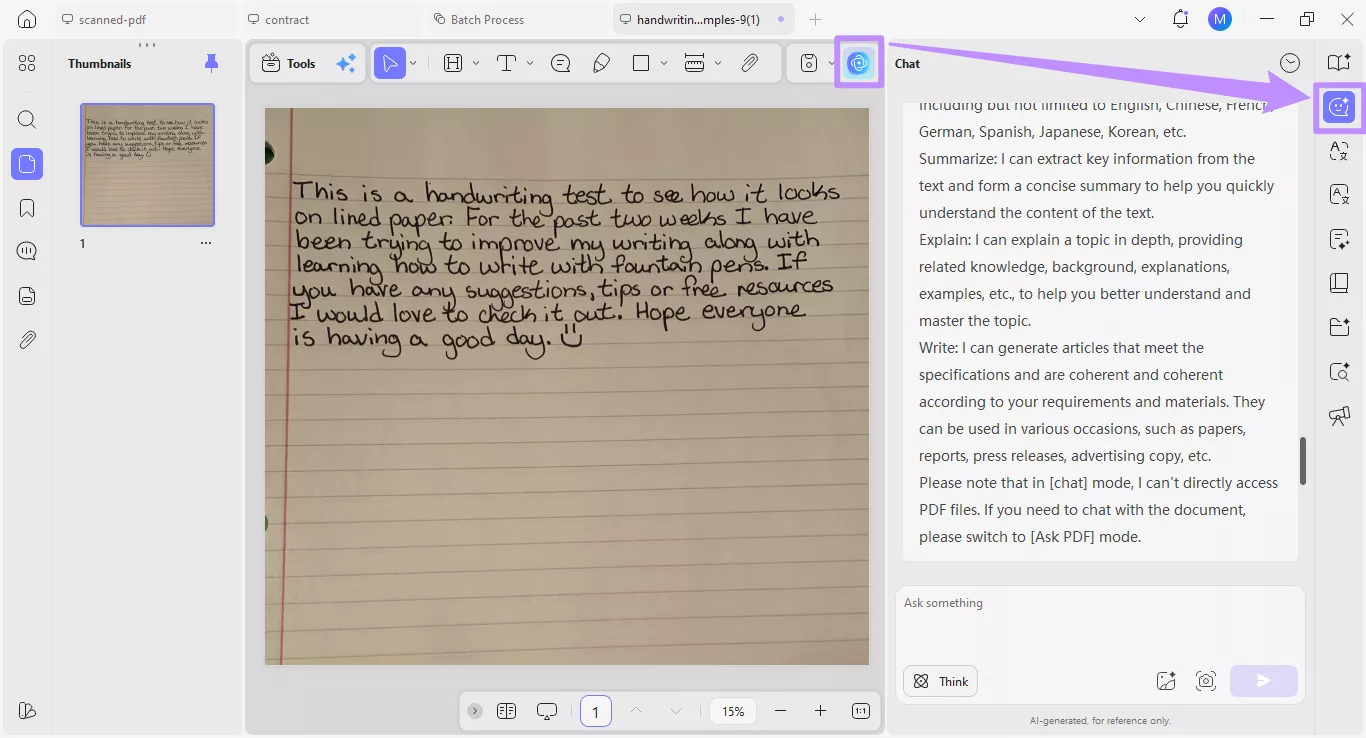 scanned-pdf
contract
Batch Process
handwritin...mples-9(1)
M
Thumbnails
Tools
Chat
This is a handwriting test to see how it looks
on lined paper. For the past two weeks I have
been trying to improve my writing along with
learning how to write with fountain pens. If
you have any suggestions, tips or free resources
I would love to check it out. Hope everyone
is having a good day.
1
This is a handwriting test to see how it looks
on lined paper. For the past two weeks I have
been trying to improve my writing along with
learning how to write with fountain pens. If
you have any suggestions, tips or free resources
I would love to check it out. Hope everyone
is having a good day. ٌ"
including but not limited to English, Chinese, French,
German, Spanish, Japanese, Korean, etc.
Summarize: I can extract key information from the
text and form a concise summary to help you quickly
understand the content of the text.
Explain: I can explain a topic in depth, providing
related knowledge, background, explanations,
examples, etc., to help you better understand and
master the topic.
Write: I can generate articles that meet the
specifications and are coherent and coherent
according to your requirements and materials. They
can be used in various occasions, such as papers,
reports, press releases, advertising copy, etc.
Please note that in [chat] mode, I can't directly access
PDF files. If you need to chat with the document,
please switch to [Ask PDF] mode.
Ask something
Think
AI-generated, for reference only.
1
15%
1:1